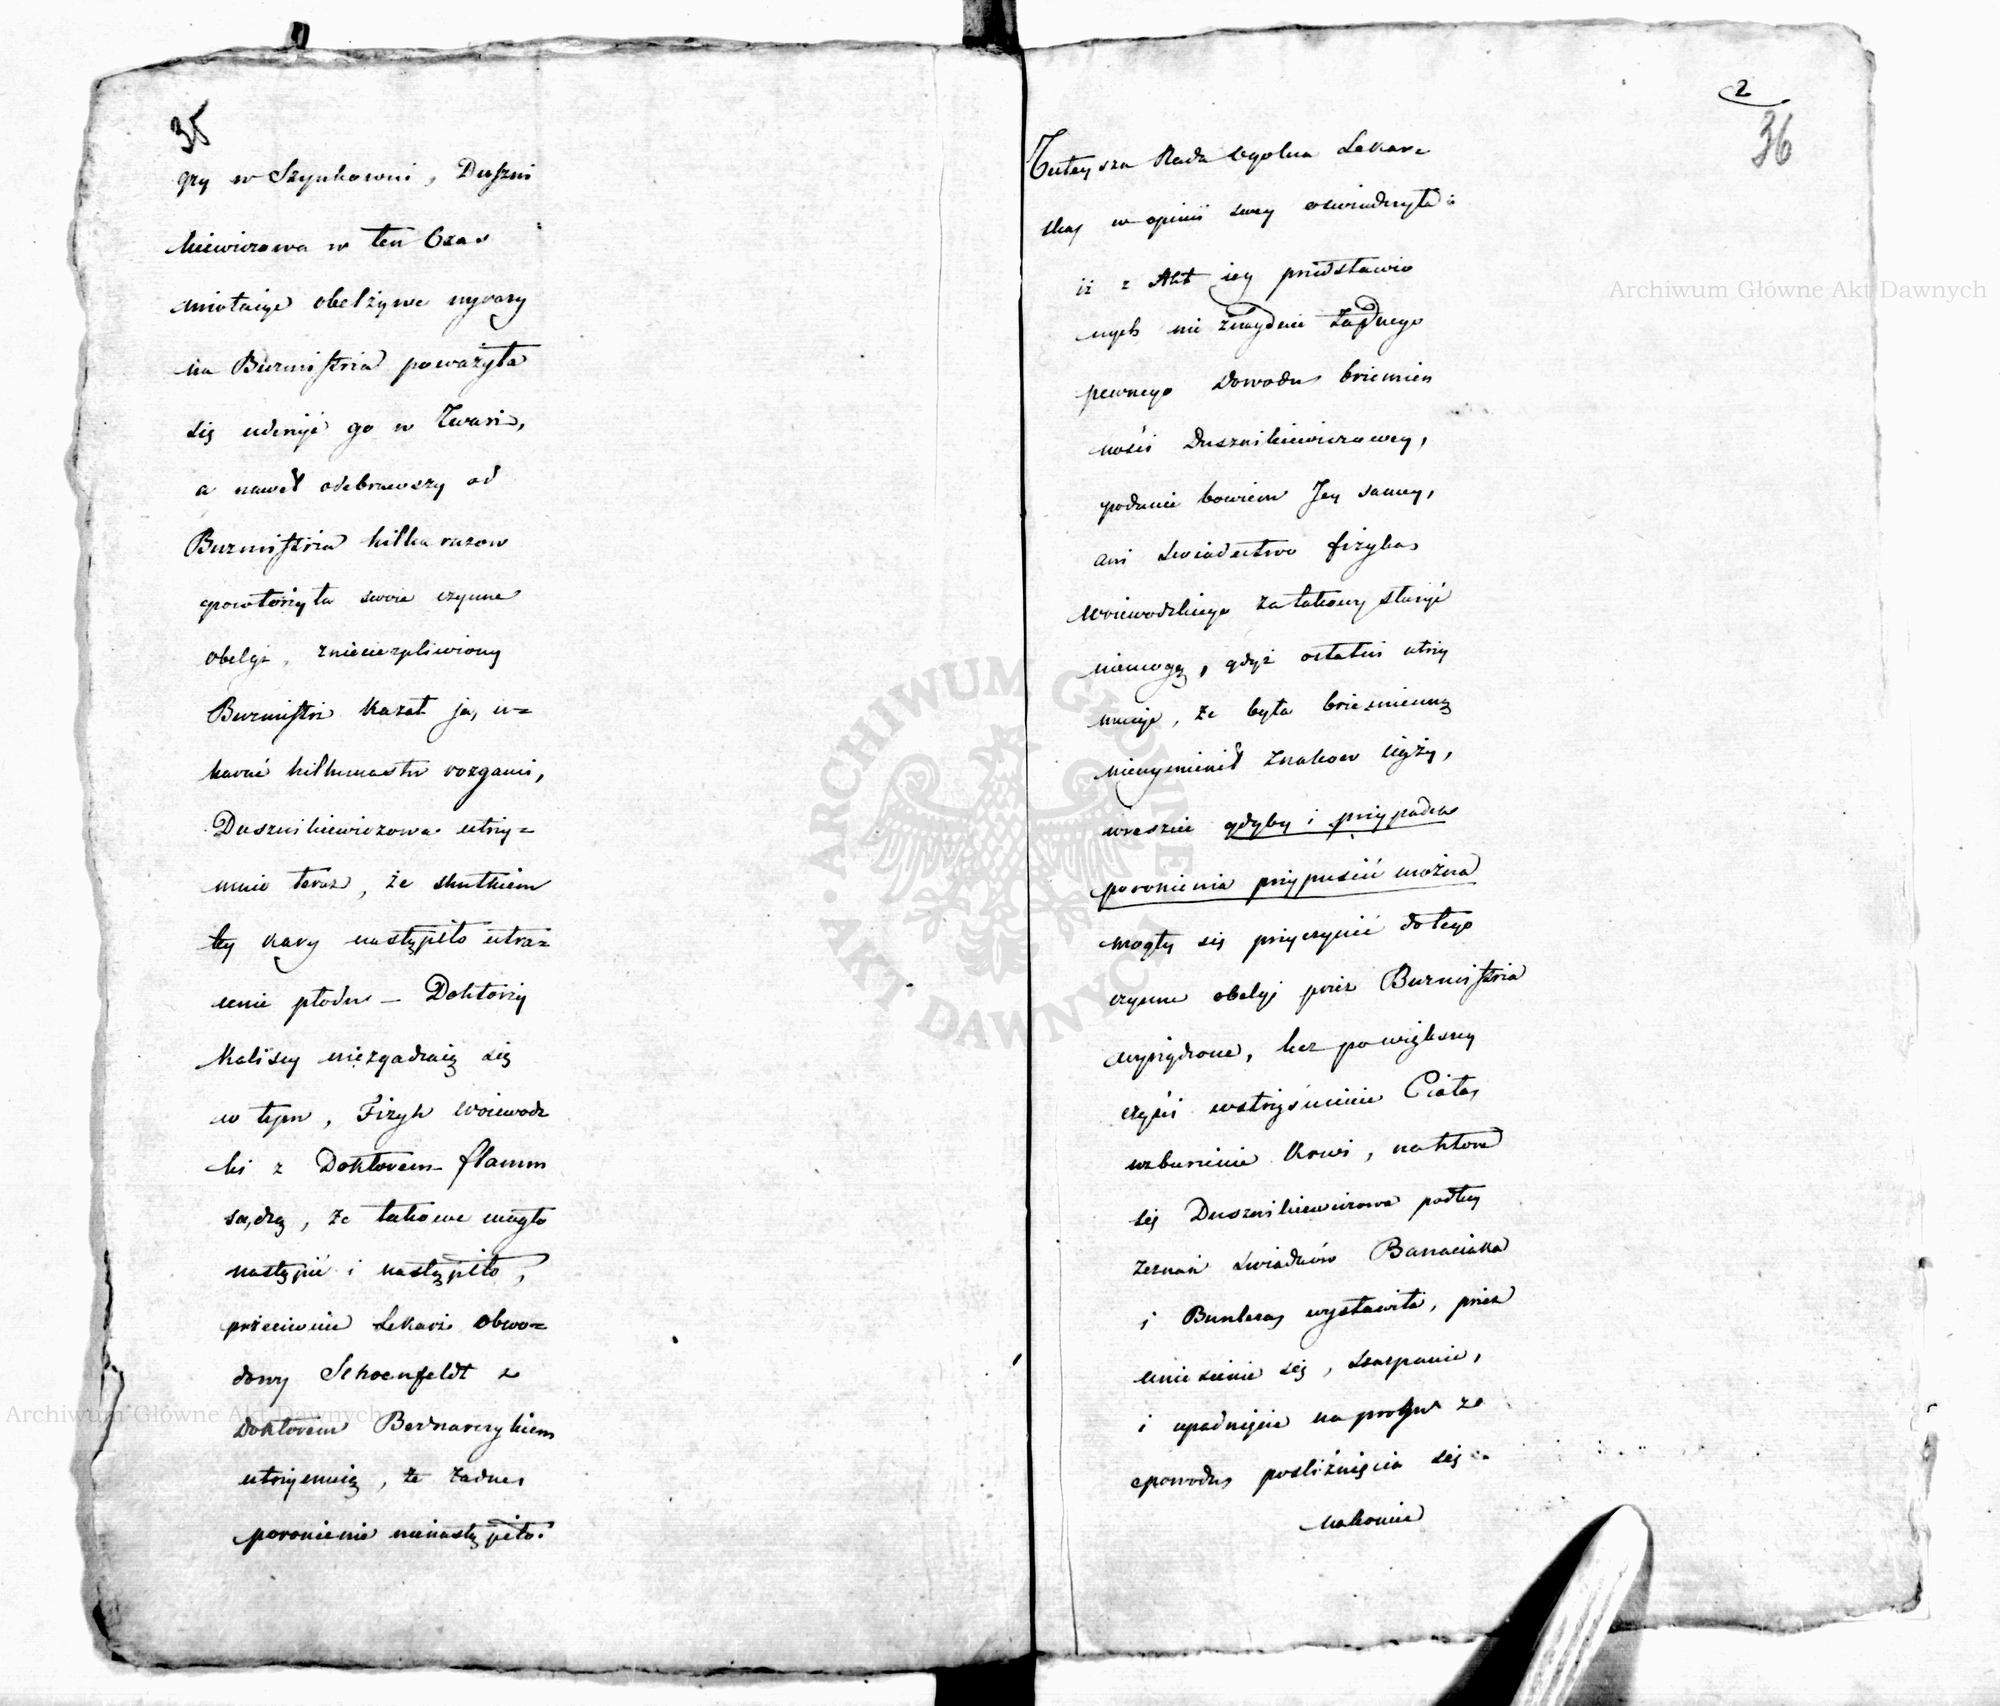 35
gry w Szynkowni, Duszni
kiewiczowa w ten Czas
miotaiąc obelżywe wyrazy
na Burmistrza poważyła
się uderzyć go w Twarz,
a nawet odebrawszy od
Burmistrza kilka razow
powtorzyła swoie czynne
obelgi, zniecierpliwiony
Burmistrz kazał ją, u=
karać kilkunastu rozgami,
Dusznikiewiczowa utrzy=
muie teraz, że skutkiem
tey kary nastąpiło utra=
cenie płodu – Doktorzy
Kaliscy niezgadzaią się
w tym, Fizyk Woiewodz
ki z Doktorem Flamm
sądzą, że takowe mogło
nastąpić i nastąpiło,
przeciwnie Lekarz obwo=
dowy Schoenfeldt z
Doktorem Bednarczykiem
utrzymuią, że żadne
poronienie nienastąpiło.
2
36
Tuteysza Rada Ogolna Lekar=
ska w opinii swey oswiadczyła
iż z Akt iey przedstawio
nych nie znayduie żadnego
pewnego dowodu brzemien
ności Dusznikiewiczowey,
podanie bowiem Jey samey,
ani swiadectwo fizyka
Woiewodzkiego za takowy służyć
niemogą, gdyż ostatni utrzy
muiąc, że była brzemienną
niewymienił znakow ciąży,
wreszcie gdyby i przypadek
poronienia przypuścić można
mogły się przyczynić do tego
czynne obelgi przez Burmistrza
wyrządzone, lecz po większey
części wstrząśnienie Ciała
wzburzenie Krwi, na które
się Dusznikiewiczowa podług
zeznań świadków Banaciaka
i Bunkera wystawiła, przez
uniesienie się, szarpanie,
i upadnięcie na progu z
powodu pośliźnięcia się
nakoniec
Archiwum Główne Akt Dawnych
Archiwum Główne Akt Dawnych
ARCHIWUM GŁÓWNE AKT DAWNYCH